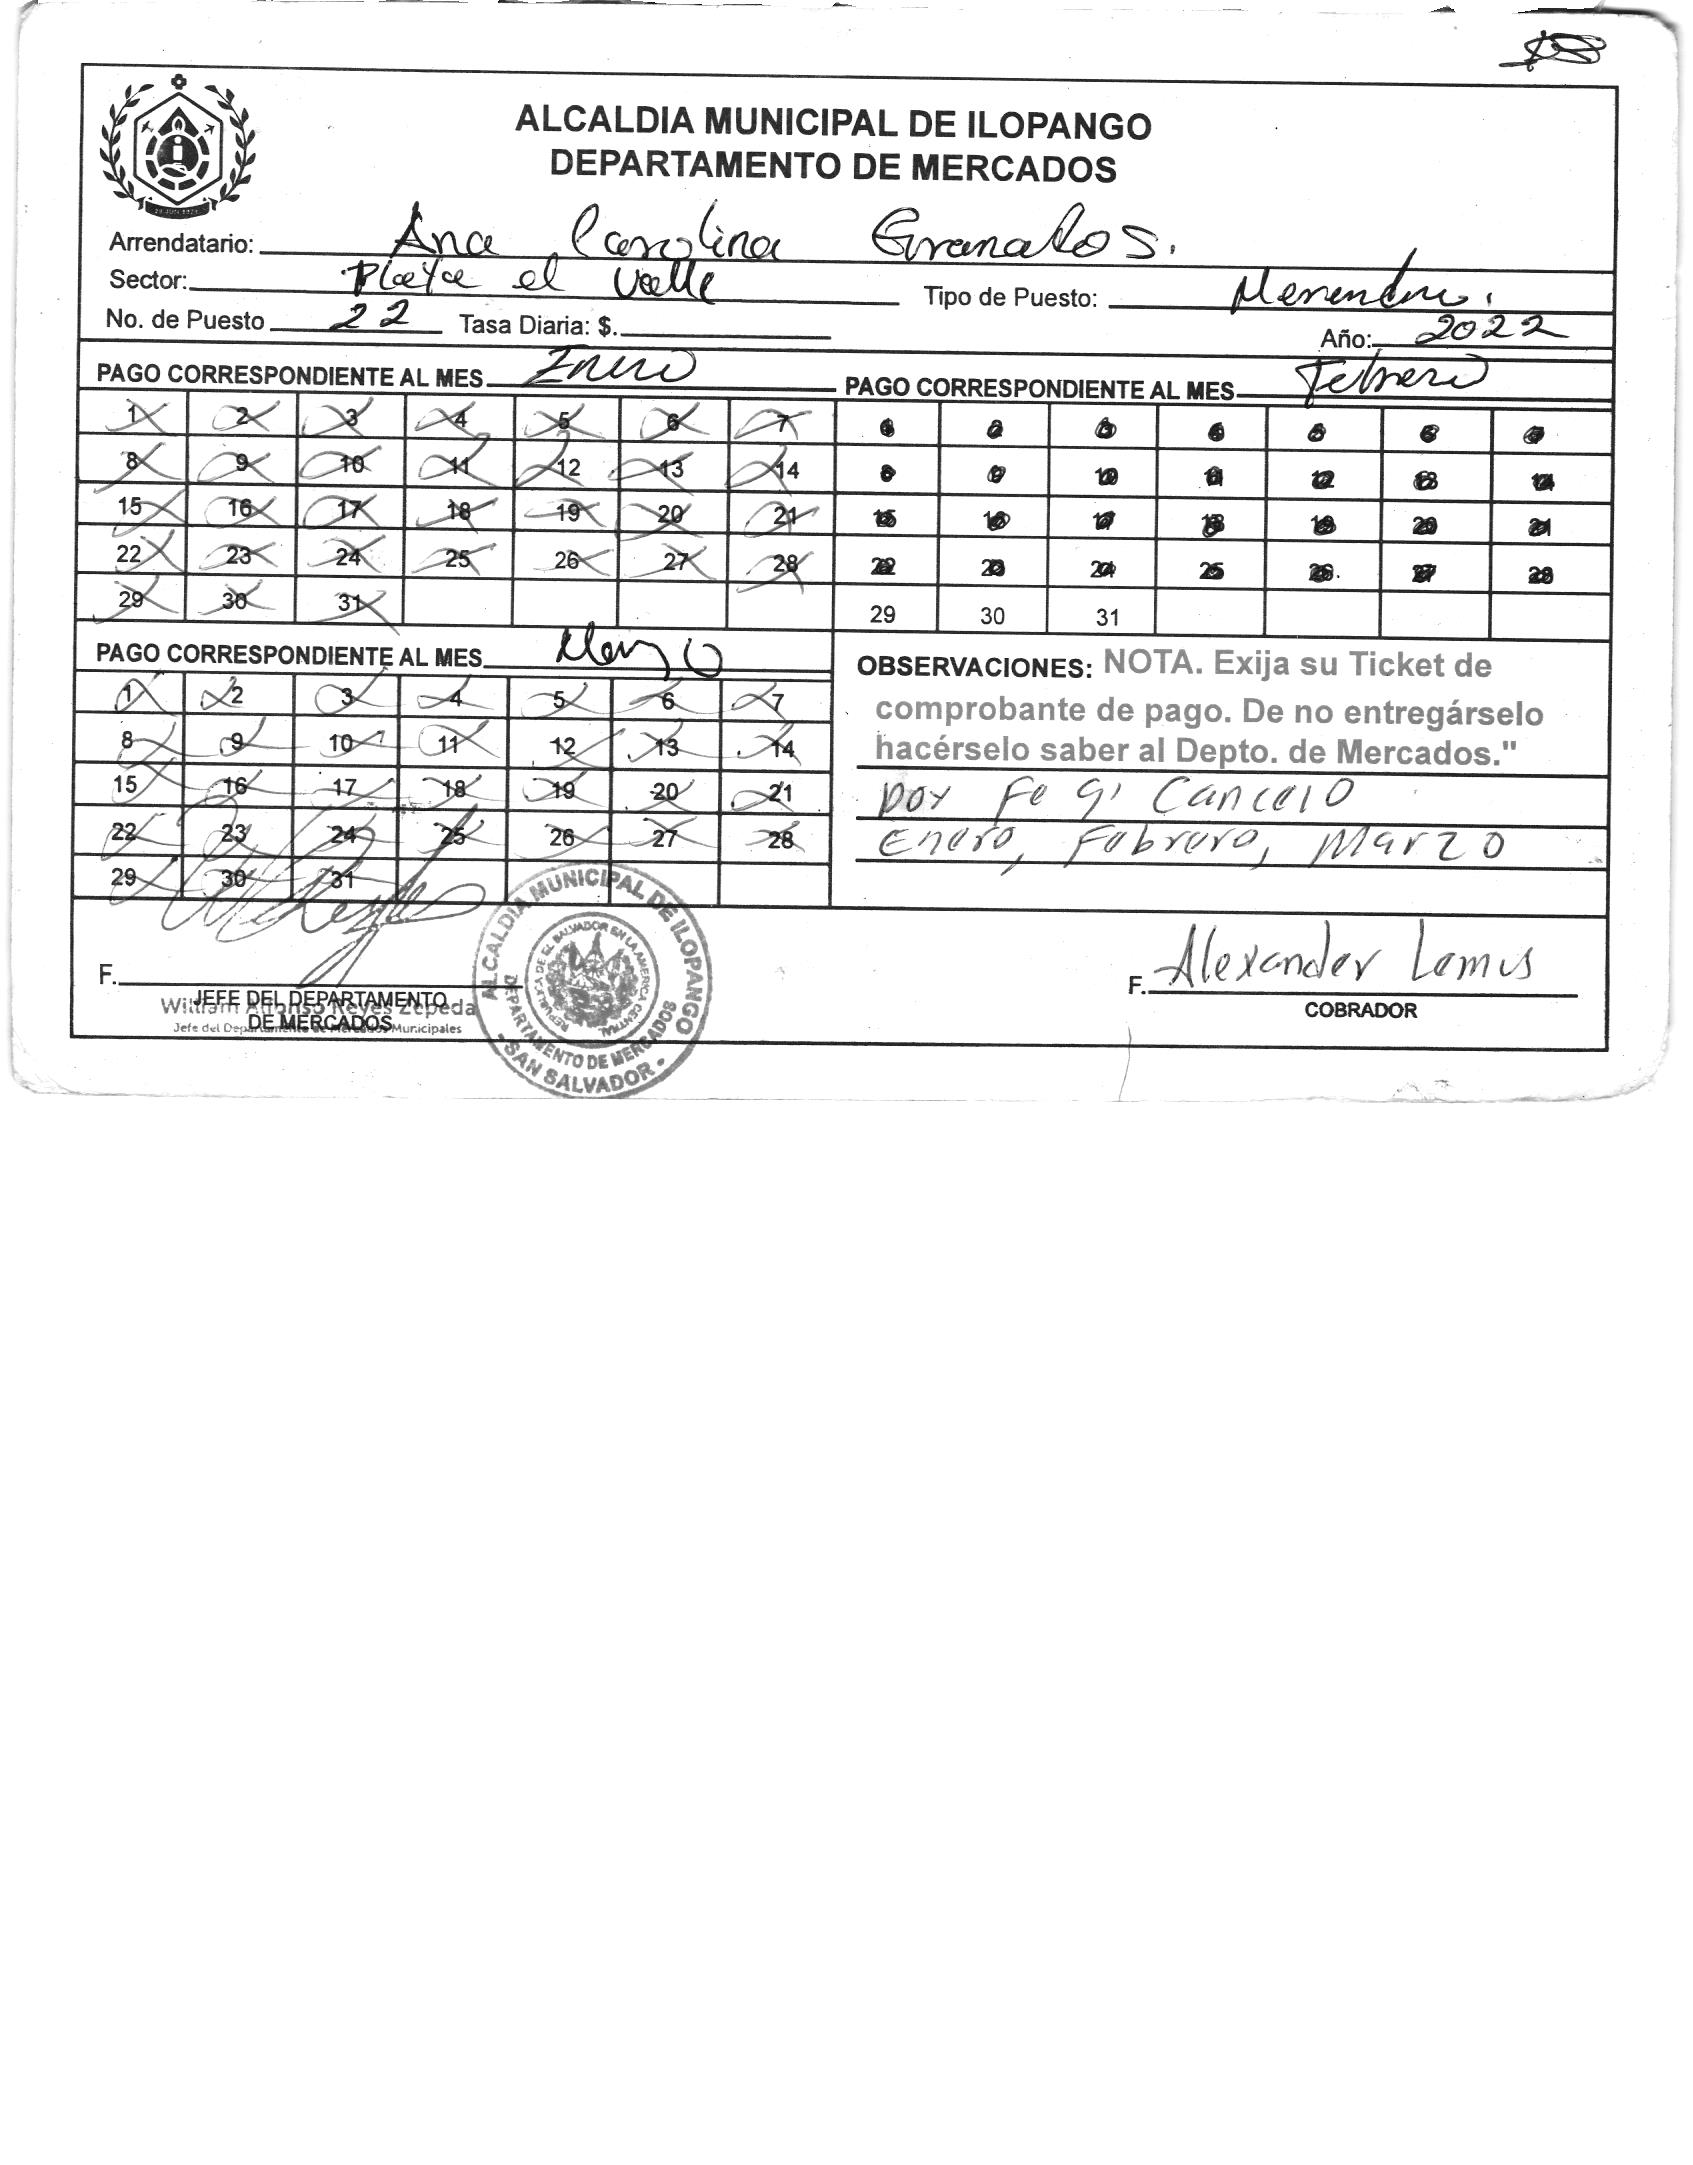 ALCALDIA MUNICIPAL DE ILOPANGO
DEPARTAMENTO DE MERCADOS
Arrendatario: Ana Carolina Granados.
Sector: Playa el Valle Tipo de Puesto:
No. de Puesto 22 Tasa Diaria: $. Año: 2022
PAGO CORRESPONDIENTE AL MES Enero
1 2 3 4 5 6 7
8 9 10 11 12 13 14
15 16 17 18 19 20 21
22 23 24 25 26 27 28
29 30 31
PAGO CORRESPONDIENTE AL MES Febrero
1 2 3 4 5 6 7
8 9 10 11 12 13 14
15 16 17 18 19 20 21
22 23 24 25 26 27 28
29 30 31
PAGO CORRESPONDIENTE AL MES Marzo
1 2 3 4 5 6 7
8 9 10 11 12 13 14
15 16 17 18 19 20 21
22 23 24 25 26 27 28
29 30 31
OBSERVACIONES: NOTA. Exija su Ticket de
comprobante de pago. De no entregárselo
hacérselo saber al Depto. de Mercados."
Doy Fe q' Cancelo
Enero, Febrero, Marzo
F.
JEFE DEL DEPARTAMENTO
DE MERCADOS
William Alfonso Reyes Zepeda
Jefe del Departamento de Mercados Municipales
ALCALDIA MUNICIPAL DE ILOPANGO
DEPARTAMENTO DE MERCADOS
REPUBLICA DE EL SALVADOR EN LA AMERICA CENTRAL
SAN SALVADOR
F. Alexander Lemus
COBRADOR